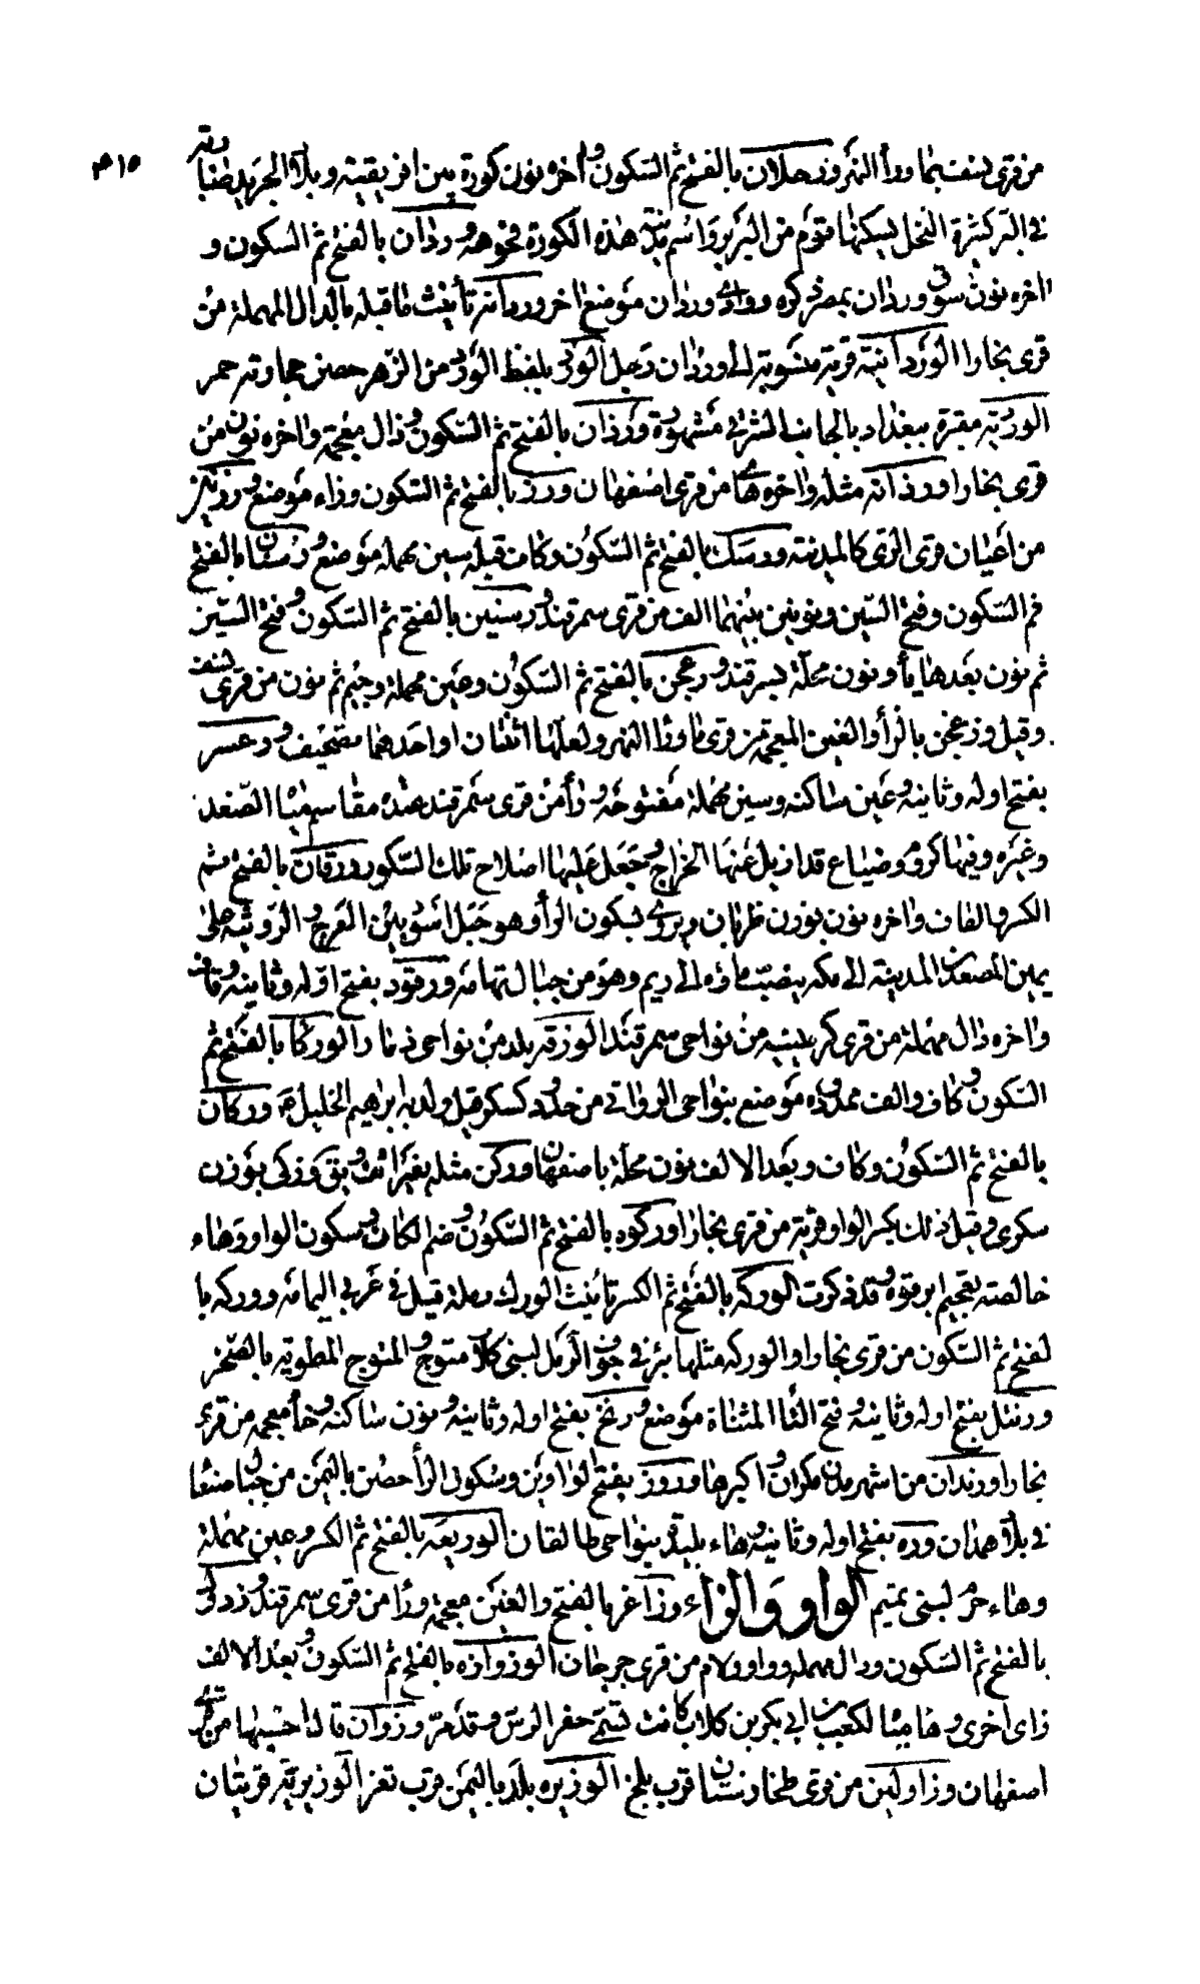 ٣١٥
من قرى نسف بما ورأ النهر ورجلان بالفتح ثم السكون وآخره نون كورة بين افريقية وبلاد الجريد ضاربة
في البر كثيرة النخل يسكنها قوم من البربر واسم مدينة هذه الكورة فجوهه وردان بالفتح ثم السكون و
اخره نون سوق وردان بمصر ذكره ووادى وردان موضع اخر وردانه تأنيث ماقبله بالدال المهملة من
قرى بخارا الوردانية قرية منسوبة الى وردان رجل الورد بلفظ الورد من الزهر حصن حجارته حمر
الوردية مقبرة ببغداد بالجانب الشرقى مشهورة ورذان بالفتح ثم السكون وذال معجمة واخره نون من
قرى بخارا ورذانه مثله واخره هاء من قرى اصفهان ورز بالفتح ثم السكون وزاء موضع ورزنين
من اعيان قرى الرى كالمدينة ورسك بالفتح ثم السكون وكاف قبله سين مهملة موضع ورسنان بالفتح
ثم السكون وفتح السين ونونين بينهما الف من قرى سمرقند ورسنين بالفتح ثم السكون وفتح السين
ثم نون بعدها يأ ونون محلة بسمرقند ورعجن بالفتح ثم السكون وعين مهملة وجيم ثم نون من قرى نسف
وقيل وزغجن بالزأ والغين المعجمة من قرى ما ورأ النهر ولعلها اثنتان او احدهما تصحيف ورغسر
بفتح اوله وثانيه وغين ساكنة وسين مهملة مفتوحة ورأ من قرى سمرقند عنده مقاسم مياه الصغد
وغيره وفيها كروم وضياع قد ازيل عنها الخراج وجعل عليها اصلاح تلك السكور ورقان بالفتح ثم
الكسر والقاف واخره نون بوزن ظربان ويروى بسكون الرأ وهو جبل اسود بين العرج والرويثة على
يمين المصعد من المدينة الى مكه ينصب ماؤه الى ريم وهو من جبال تهامه ورقود بفتح اوله وثانيه وقاف
واخره دال مهملة من قرى كرمينيه من نواحى سمرقند الورقه بلد من نواحى ذمار الوركا بالفتح ثم
السكون وكاف والف ممدوده موضع بنواحى الزوابي من حدود كسكر قيل ولد به ابرهيم الخليل عم وركان
بالفتح ثم السكون وكاف وبعد الالف نون محلة باصفهان وركن مثله بغير الف وبق وزكى بوزن
سكرى وقيل ذلك بكسر الواو قرية من قرى بخارا وركوه بالفتح ثم السكون وضم الكاف وسكون الواو وهاء
خالصة بقيم ابرقوه وقد ذكرت الوركه بالفتح ثم الكسر تأنيث الورك رملة قيل في غربى اليمامه ووركه با
لفتح ثم السكون من قرى بخارا والوركه مثلها بئر في جوف الرمل لبنى كلاب متوج والمنوج المطويه بالصخر
ورنتل بفتح اوله وثانيه وفتح التأ المثناة موضع ورنخ بفتح اوله وثانيه ونون ساكنة وخأ معجمه من قرى
بخارا ورندان من اشهر مدن مكران واكبرها ورور بفتح الواوين وسكون الرأ حصن باليمن من جبال صنعا
في بلاد همدان وره بفتح اوله وثانيه وهاء بليدة بنواحى طالقان الوريعه بالفتح ثم الكسر وعين مهملة
وهاء حزم لبنى تميم الواو والزاء وزاغر بالفتح والغين معجمة ورا من قرى سمرقند وزدول
بالفتح ثم السكون ودال مهملة وواو ولام من قرى جرجان الوزوازه بالفتح ثم السكون وبعد الالف
زاى اخرى وهاء مياه لكعب من ابي بكر بن كلاب كانت تسمى حفر الرس وقد مر وزوان قال احسبها من قرى
اصفهان وزاولين من قرى طخارستان قرب بلخ الوزيره بلد باليمن قرب تعز الوزيرية قريتان